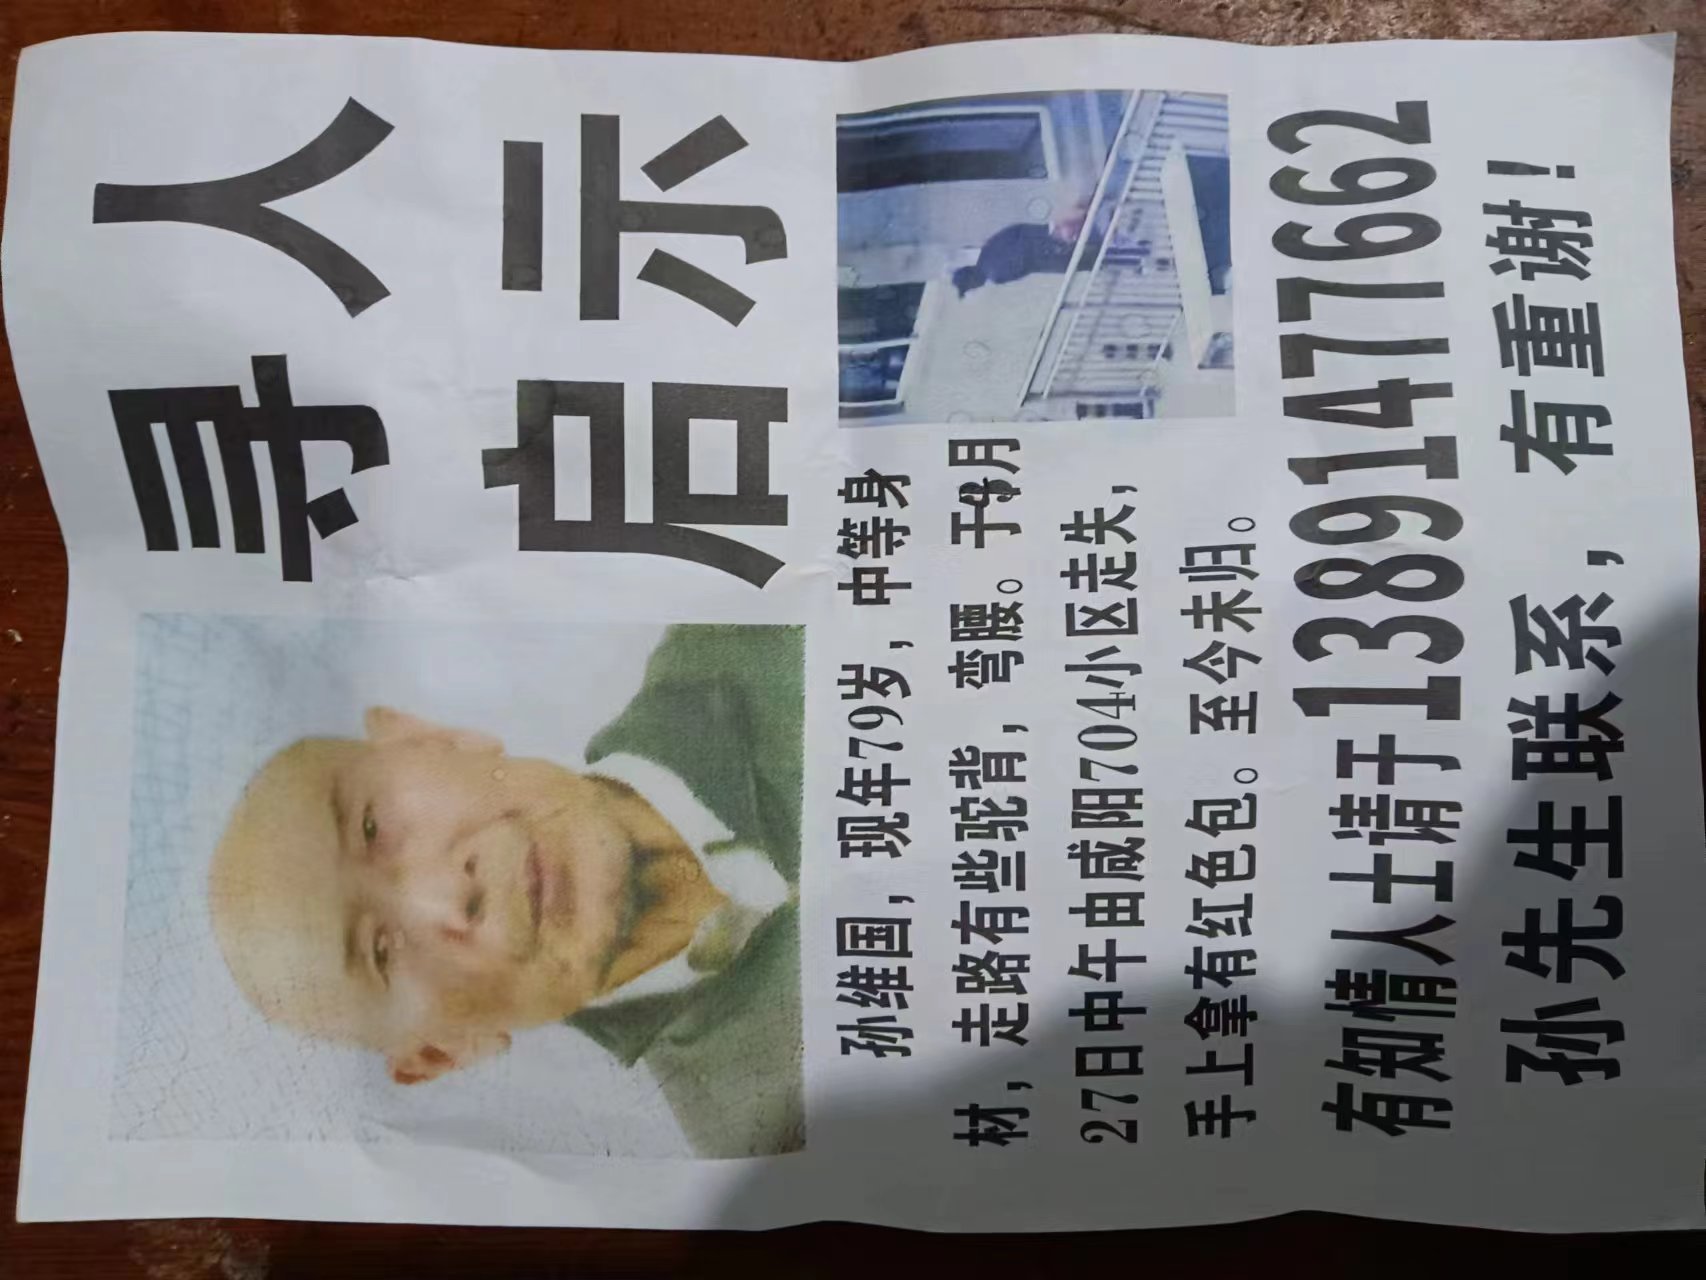 寻人
启示
孙维国，现年79岁，中等身
材，走路有些驼背，弯腰。于3月
27日中午由咸阳704小区走失，
手上拿有红色包。至今未归。
有知情人士请于13891477662
孙先生联系，有重谢！